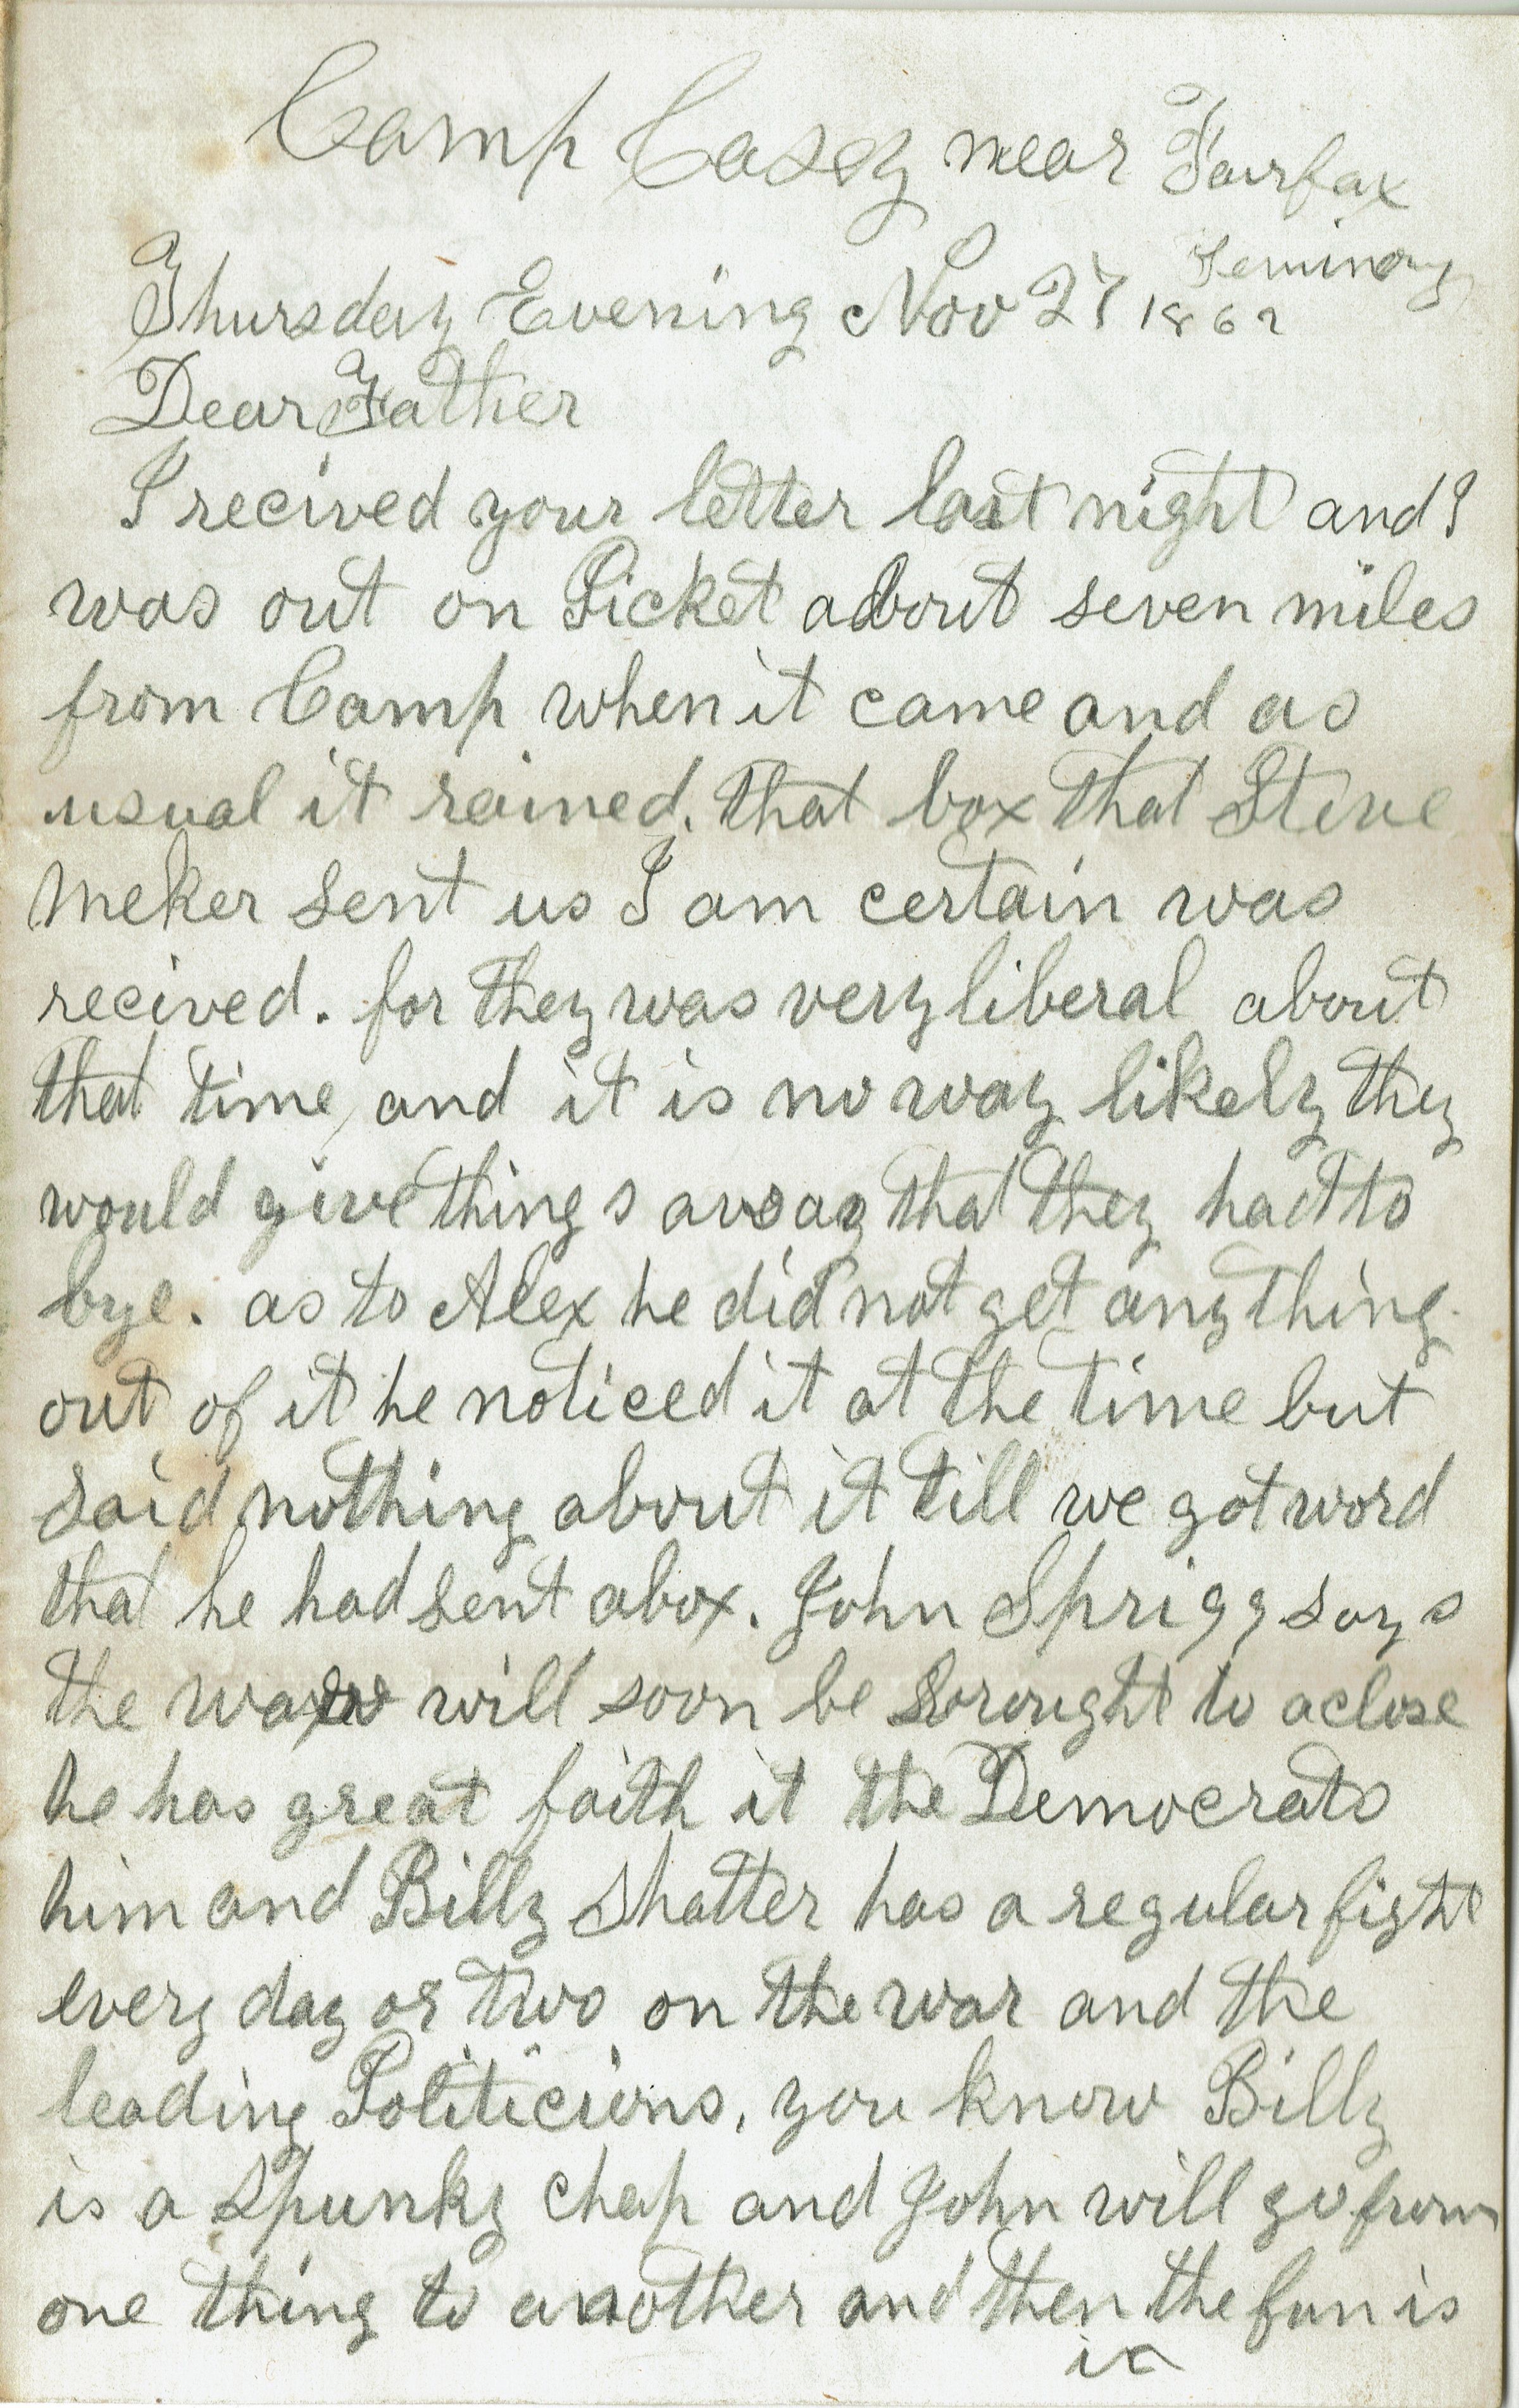 Camp Casey near Fairfax
Seminary
Thursday Evening Nov 27 1862
Dear Father
I recived your letter last night and I
was out on Picket about seven miles
from Camp when it came and as
usual it rained. that box that Steve
Meker sent us I am certain was
recived. for they was very liberal about
that time, and it is no way likely they
would give things away that they had to
bye. as to Alex he did not get any thing
out of it he noticed it at the time but
said nothing about it till we got word
that he had sent a box. John Sprigg says
the war will soon be brought to a close
he has great faith it the Democrats
him and Billy Shatter has a regular fight
every day or two on the war and the
leading Politicions, you know Billy
is a spunky chap and John will go from
one thing to another and then the fun is
is